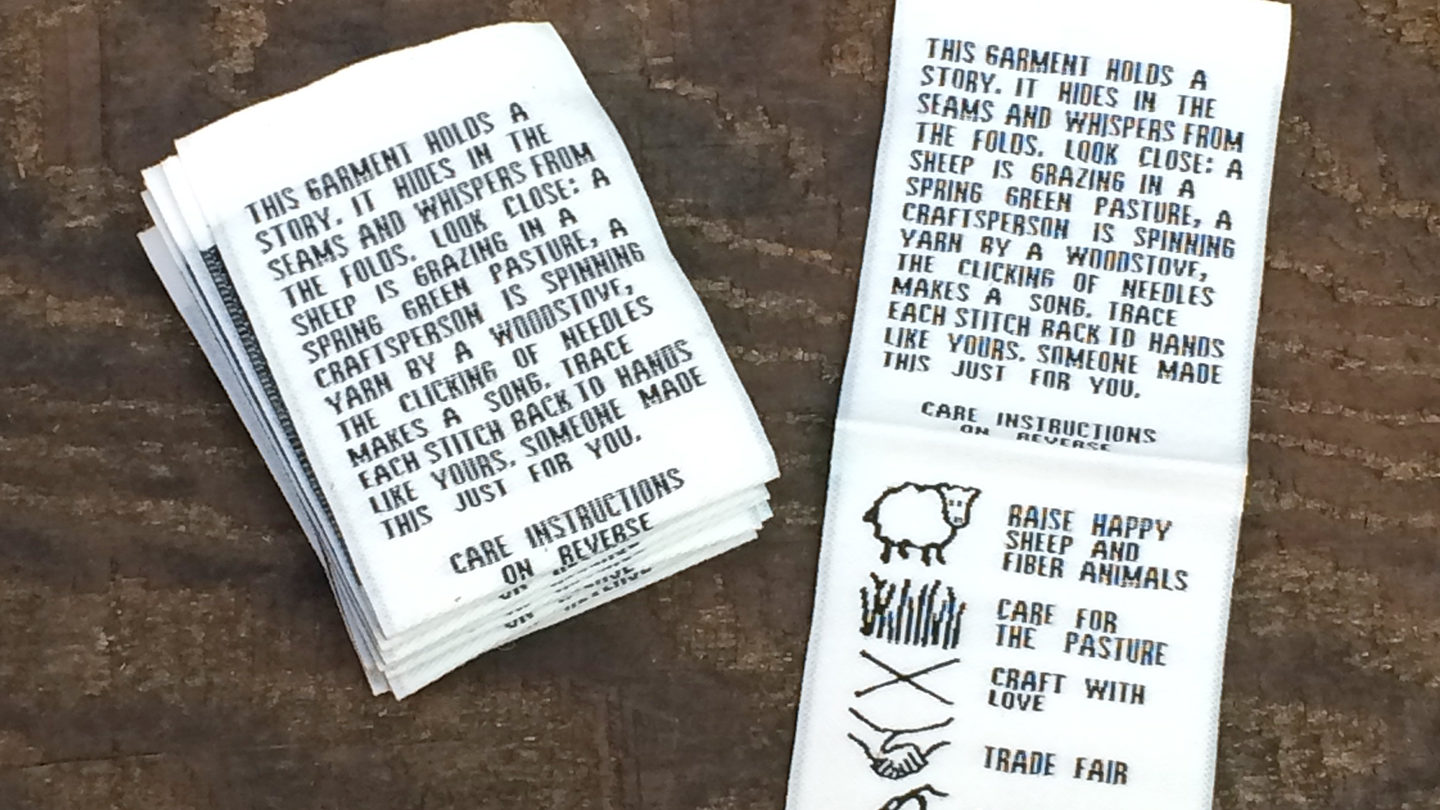 THIS GARMENT HOLDS A
STORY. IT HIDES IN THE
SEAMS AND WHISPERS FROM
THE FOLDS. LOOK CLOSE: A
SHEEP IS GRAZING IN A
SPRING GREEN PASTURE, A
CRAFTSPERSON IS SPINNING
YARN BY A WOODSTOVE,
THE CLICKING OF NEEDLES
MAKES A SONG. TRACE
EACH STITCH BACK TO HANDS
LIKE YOURS. SOMEONE MADE
THIS JUST FOR YOU.
CARE INSTRUCTIONS
ON REVERSE
THIS GARMENT HOLDS A
STORY. IT HIDES IN THE
SEAMS AND WHISPERS FROM
THE FOLDS. LOOK CLOSE: A
SHEEP IS GRAZING IN A
SPRING GREEN PASTURE, A
CRAFTSPERSON IS SPINNING
YARN BY A WOODSTOVE,
THE CLICKING OF NEEDLES
MAKES A SONG. TRACE
EACH STITCH BACK TO HANDS
LIKE YOURS. SOMEONE MADE
THIS JUST FOR YOU.
CARE INSTRUCTIONS
ON REVERSE
RAISE HAPPY
SHEEP AND
FIBER ANIMALS
CARE FOR
THE PASTURE
CRAFT WITH
LOVE
TRADE FAIR